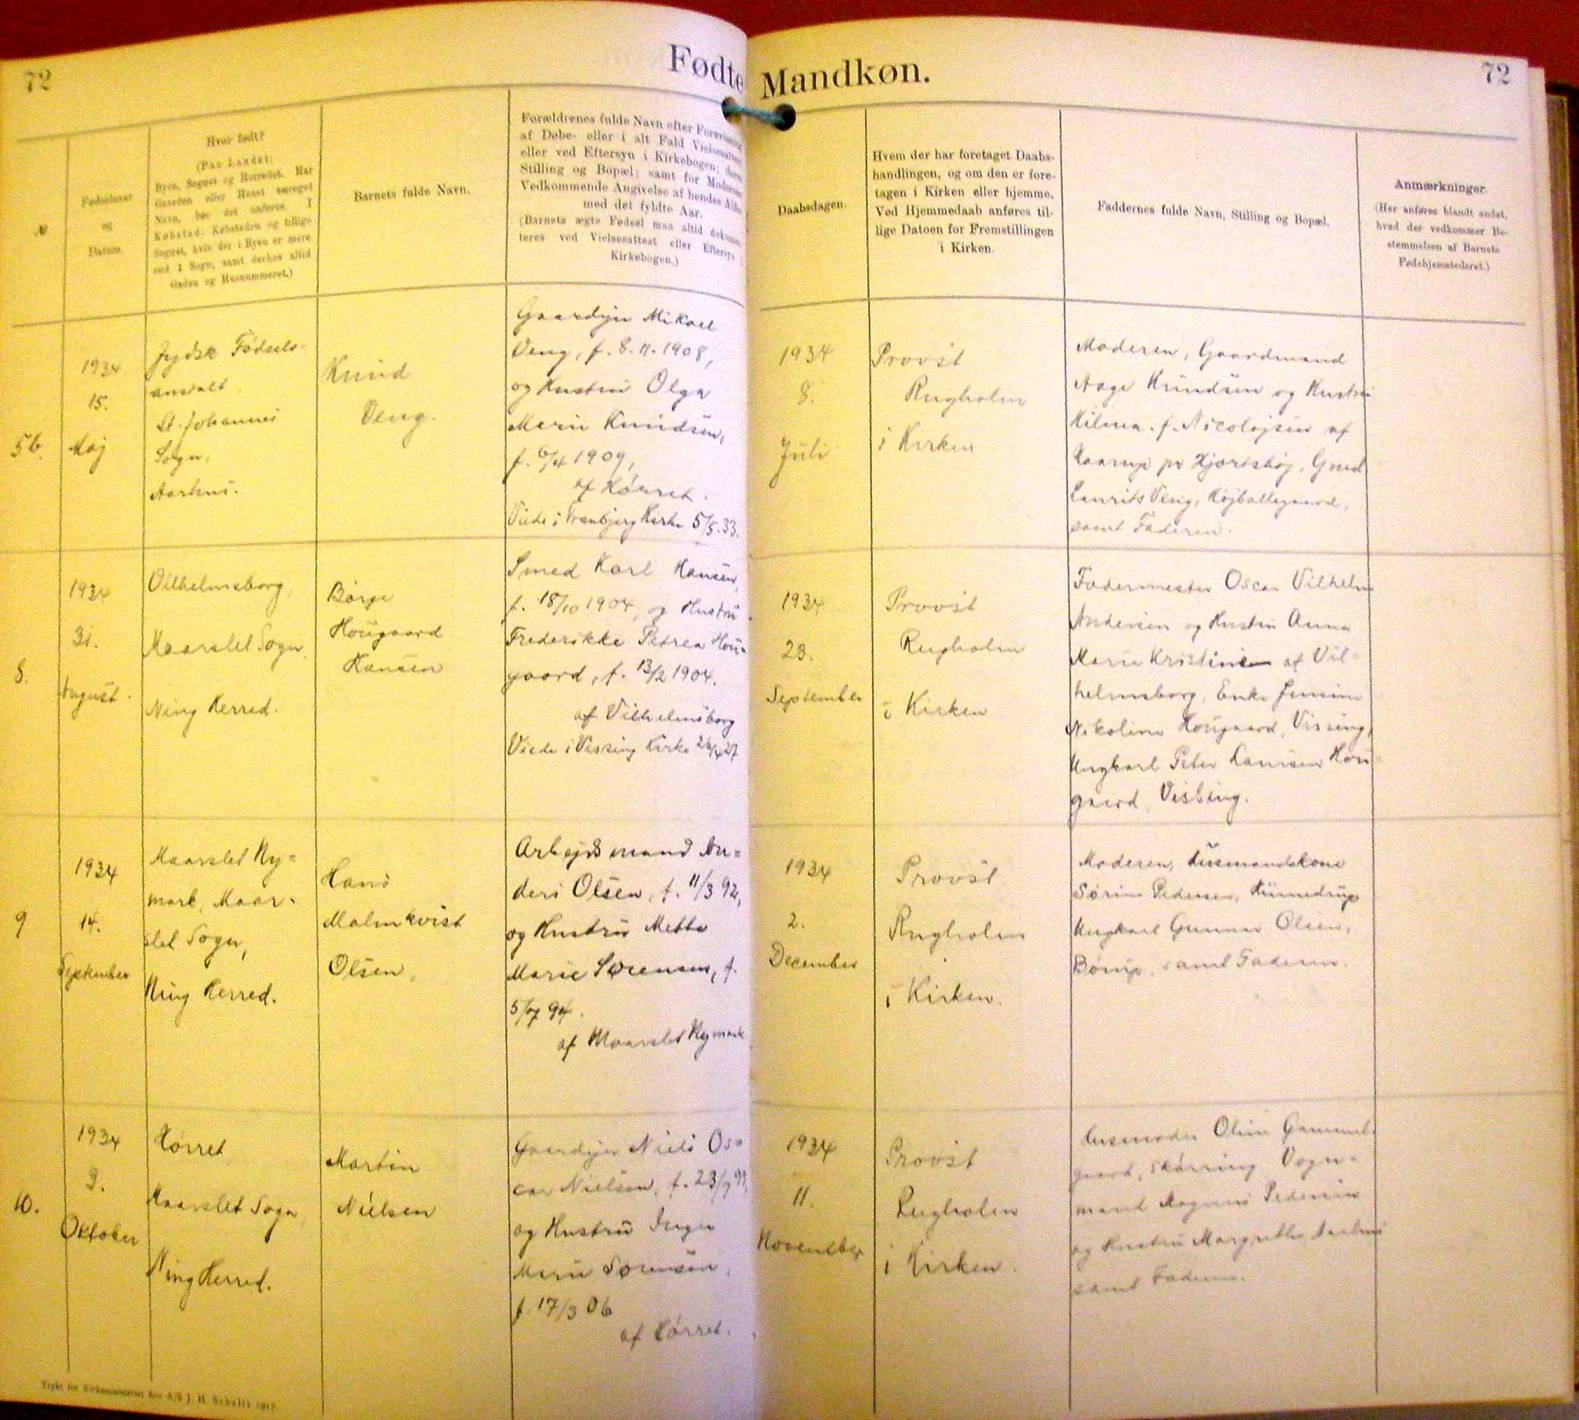 72
Fødte
Mandkøn.
72
№
Fødselsaar
og
Datum.
Hvor født?
(Paa Landet:
Byen, Sognet og Herredet. Har
Gaarden eller Huset særeget
Navn, bør det anføres. I
Købstad: Købstaden og tillige
Sognet, hvis der i Byen er mere
end 1 Sogn, samt derhos altid
Gaden og Husnummeret.)
Barnets fulde Navn.
Forældrenes fulde Navn efter
af Døbe- eller i alt Fald
eller ved Eftersyn i Kirkebogen;
Stilling og Bopæl; samt for
Vedkommende Angivelse af hendes
med det fyldte Aar.
(Barnets ægte Fødsel maa altid
teres ved Vielsesattest eller Eftersyn
Kirkebogen.)
Daabsdagen.
Hvem der har foretaget Daabs-
handlingen, og om den er fore-
tagen i Kirken eller hjemme.
Ved Hjemmedaab anføres til-
lige Datoen for Fremstillingen
i Kirken.
Faddernes fulde Navn, Stilling og Bopæl.
Anmærkninger.
(Her anføres blandt andet,
hvad der vedkommer Be-
stemmelsen af Barnets
Fødehjemstedsret.)
1934
15.
Maj
Jydsk Fødsels-
anstalt
St. Johannes
Sogn.
Aarhus.
Knud
Veng.
Gaardejer Mikael
Veng, f. 8.11.1908,
og Hustru Olga
Marie Knudsen,
f. 6/4 1909,
af Hørret.
Viede i Tranbjerg Kirke 5/5.33.
1934
8.
Juli
Provst
Rugholm
i Kirken
Moderen, Gaardmand
Aage Knudsen og Hustru
f. Nicolajsen af
Kaarup pr Hjortshøj, Gmd
Laurits Veng, Højballegaard,
samt Faderen.
8.
1934
31.
August.
Vilhelmsborg,
Maarslet Sogn,
Ning Herred.
Børge
Hougaard
Hansen
Smed Karl Hansen,
f. 18/10 1904, og Hustru
Frederikke Petrea Hou-
gaard, f. 13/2 1904.
af Vilhelmsborg
Viede i Vissing Kirke 26/4 27
1934
23.
September
Provst
Rugholm
i Kirken
Fodermester Oscar Vilhelm
Andersen og Hustru Anna
Marie Kristine af Vil-
helmsborg, Enke Jensine
Nikoline Hougaard, Vissing,
Ungkarl Peter Laursen Hou-
gaard, Vissing.
9
1934
14.
September
Maarslet Ny-
mark, Maar-
slet Sogn,
Ning Herred.
Hans
Malmkvist
Olsen,
Arbejdsmand An-
ders Olsen, f. 11/3 92,
og Hustru Mette
Marie Sørensen, f.
5/7 94.
af Maarslet Nymark
1934
2.
December
Provst
Rugholm
i Kirken.
Moderen, Husmandskone
Sørine Pedersen,
Ungkarl Gunnar Olsen,
Børup, samt Faderen.
10.
1934
Oktober
Hørret
Maarslet Sogn,
Ning Herred.
Martin
Nielsen
Gaardejer Niels Os-
car Nielsen, f. 23/9 99,
og Hustru Inger
Marie Sørensen,
f. 17/3 06
af Hørret.
1934
11.
November
Provst
Rugholm
i Kirken.
Husmoder Oline Gammel-
gaard, Skørring Vogn-
mand Magnus Pedersen
og Hustru Margrethe, Aarhus
samt Faderen.
Trykt for Kirkeministeriet hos A/S J. H. Schultz 1917.